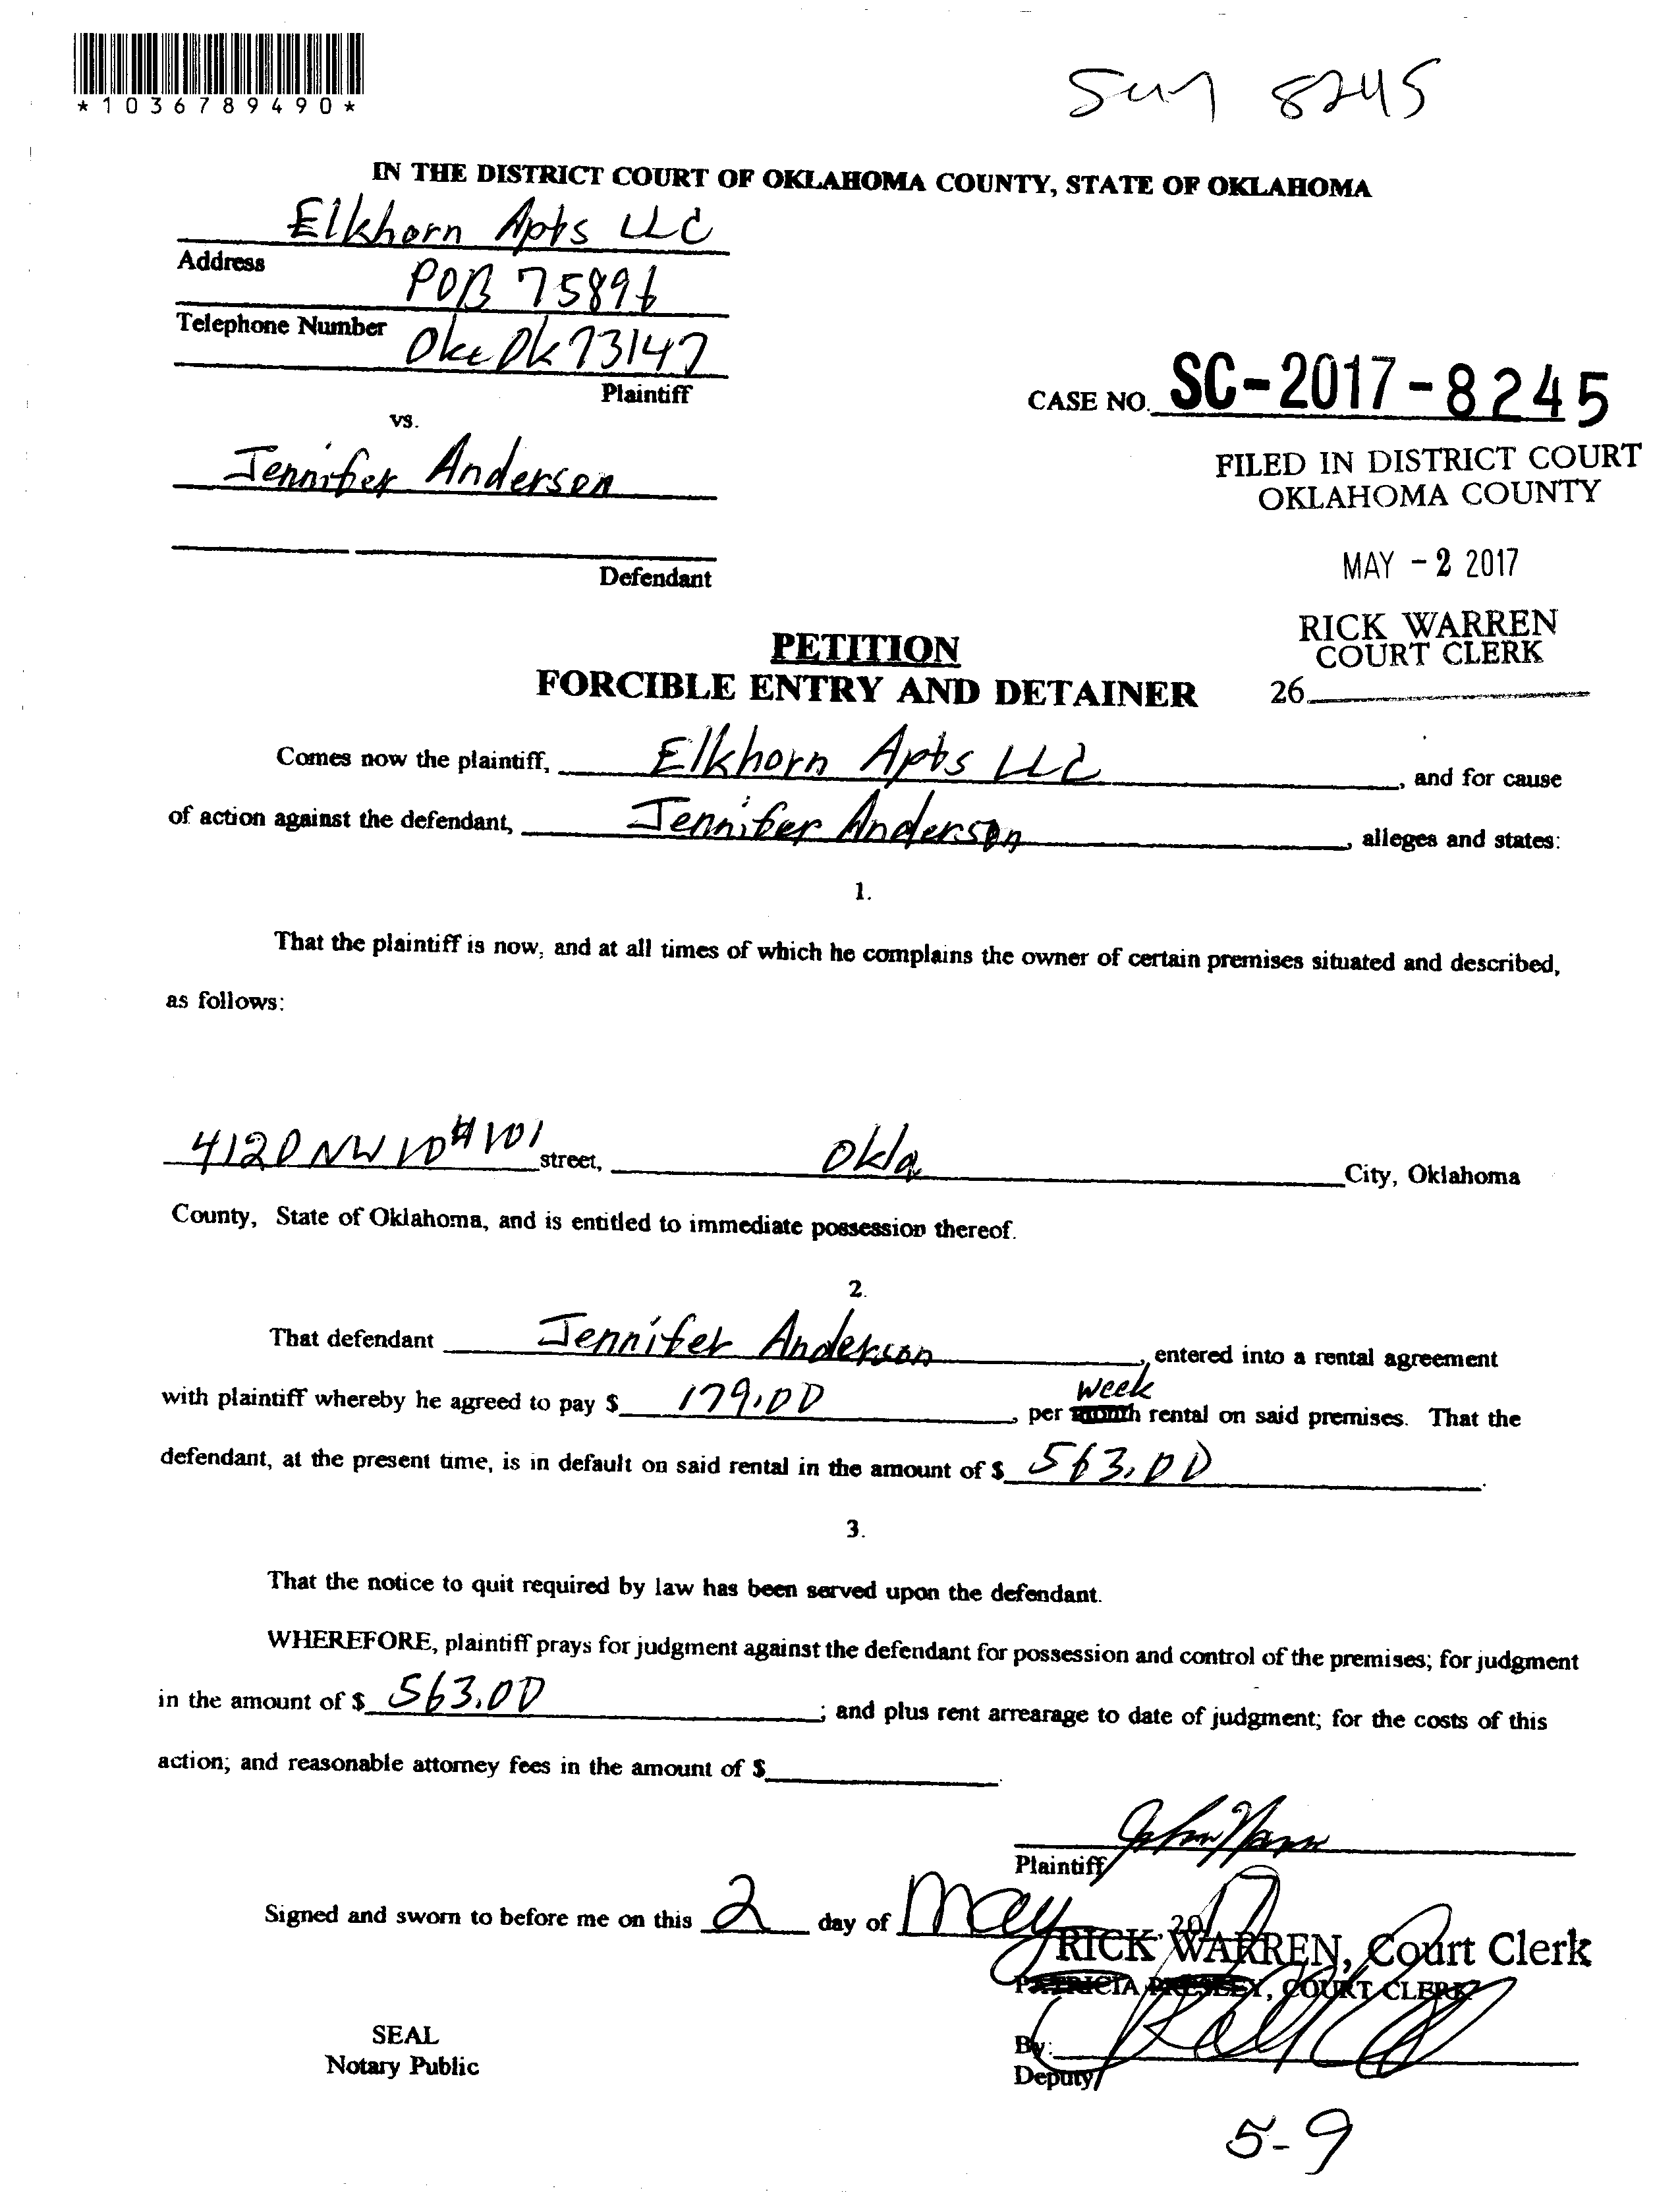 *1036789490*
8245
IN THE DISTRICT COURT OF OKLAHOMA COUNTY, STATE OF OKLAHOMA
Elkhorn Apts LLC
Address
POB 75896
Telephone Number
Okc Ok 73147
Plaintiff
CASE NO. SC-2017-8245
vs.
FILED IN DISTRICT COURT
OKLAHOMA COUNTY
Jennifer Anderson
MAY -2 2017
Defendant
RICK WARREN
COURT CLERK
26
PETITION
FORCIBLE ENTRY AND DETAINER
Comes now the plaintiff, Elkhorn Apts LLC, and for cause
of action against the defendant, Jennifer Anderson, alleges and states:
1.
That the plaintiff is now, and at all times of which he complains the owner of certain premises situated and described,
as follows:
4120 NW 10 #101 street, Okla City, Oklahoma
County, State of Oklahoma, and is entitled to immediate possession thereof.
2.
That defendant Jennifer Anderson, entered into a rental agreement
with plaintiff whereby he agreed to pay $ 179.00, per month week rental on said premises. That the
defendant, at the present time, is in default on said rental in the amount of $ 563.00.
3.
That the notice to quit required by law has been served upon the defendant.
WHEREFORE, plaintiff prays for judgment against the defendant for possession and control of the premises; for judgment
in the amount of $ 563.00; and plus rent arrearage to date of judgment; for the costs of this
action; and reasonable attorney fees in the amount of $
Plaintiff
Signed and sworn to before me on this 2 day of May, 2017
RICK WARREN, Court Clerk
PATRICIA PRESLEY, COURT CLERK
SEAL
Notary Public
By:
Deputy
5-9